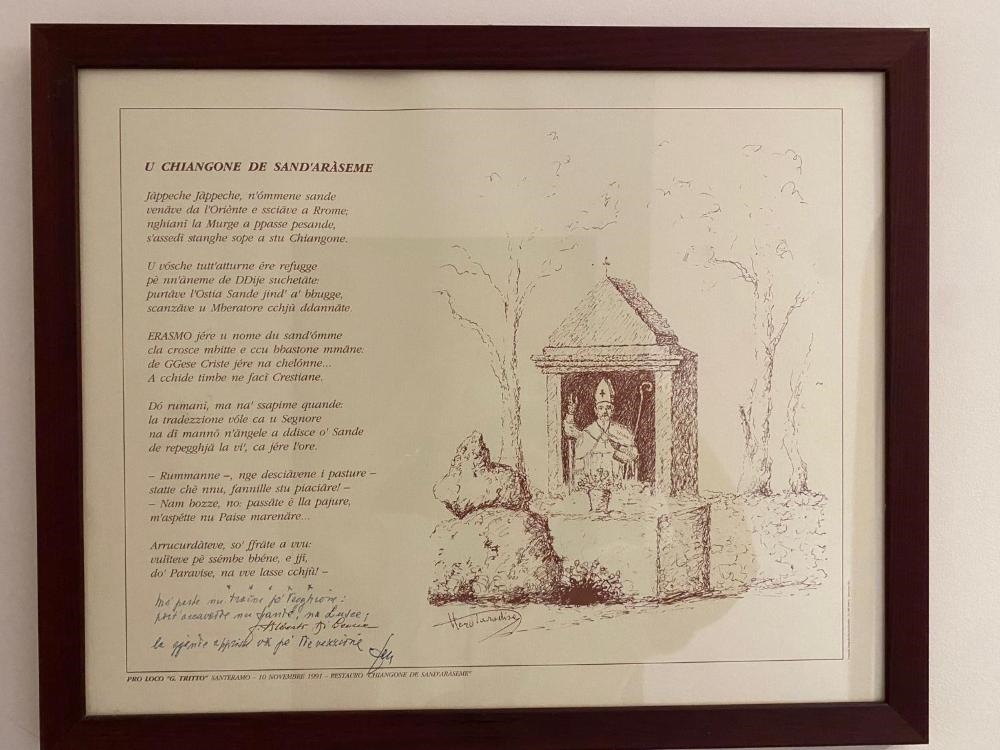 U CHIANGONE DE SAND'ARÀSEME
Jãppeche Jãppeche, n'ómmene sande
venãve da l'Oriènte e ssciãve a Rrome;
nghianî la Murge a ppasse pesande,
s'assedî stanghe sope a stu Chiangone.
U vósche tutt'atturne êre refugge
pè nn'ãneme de DDije suchetãte:
purtãve l'Ostia Sande jind' a' bbugge,
scanzãve u Mberatore cchjù ddannãte.
ERASMO jére u nome du sand'ômme
cla crosce mbitte e ccu bbastone mmãne:
de GGese Criste jére na chelônne...
A cchide timbe ne facî Crestiane.
Dó rumanî, ma na' ssapime quande:
la tradezzione vôle ca u Segnore
na dî mannô n'ãngele a ddisce o' Sande
de repegghjã la vi', ca jére l'ore.
– Rummanne –, nge desciãvene i pasture –
statte chè nnu, fannille stu piaciãre! –
– Nam bozze, no: passãte è lla pajure,
m'aspêtte nu Paise marenãre...
Arrucurdãteve, so' ffrãte a vvu:
vulîteve pè ssémbe bbéne, e jjî,
do' Paravise, na vve lasse cchjù! –
Hero Paradiso
PRO LOCO "G. TRITTO" SANTERAMO – 10 NOVEMBRE 1991 – RESTAURO "CHIANGONE DE SAND'ARASEME"